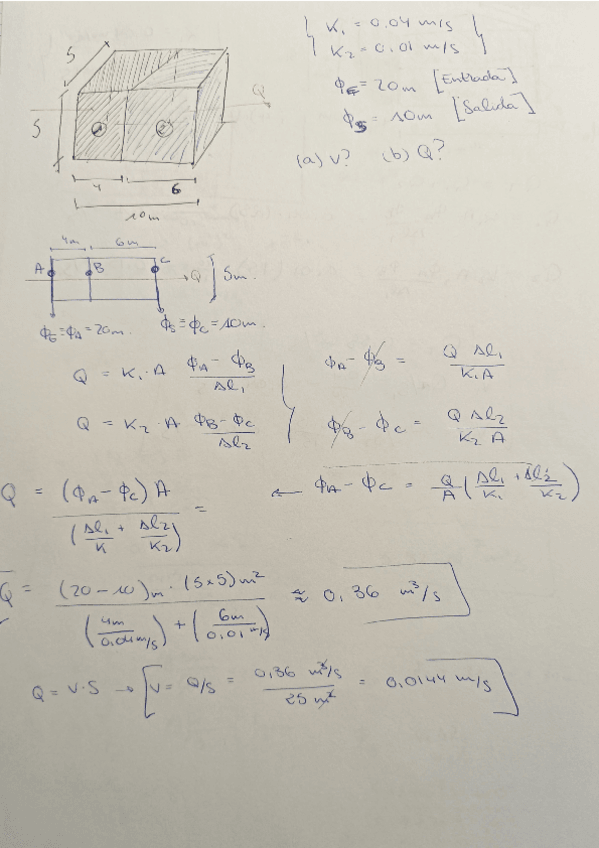 K₁ = 0.04 m/s
K₂ = 0.01 m/s
ϕE = 20m [Entrada]
ϕS = 10m [Salida]
(a) v? (b) Q?
5
5
1 2
Q
4 6
10m
4m 6m
A B C Q 5m.
ϕE = ϕA = 20m. ϕS = ϕC = 10m.
Q = K₁·A (ϕA - ϕB)/Δl₁
ϕA - ϕB = Q Δl₁/(K₁A)
Q = K₂·A (ϕB - ϕC)/Δl₂
ϕB - ϕC = Q Δl₂/(K₂ A)
Q = (ϕA - ϕC) A/(Δl₁/K + Δl₂/K₂) = ← ϕA - ϕC = Q/A (Δl₁/K₁ + Δl₂/K₂)
Q = (20-10)m · (5x5)m²/((4m/0.04m/s) + (6m/0.01m/s)) ≈ 0,36 m³/s
Q = v·S → v = Q/S = 0,36 m³/s / 25 m² = 0,0144 m/s